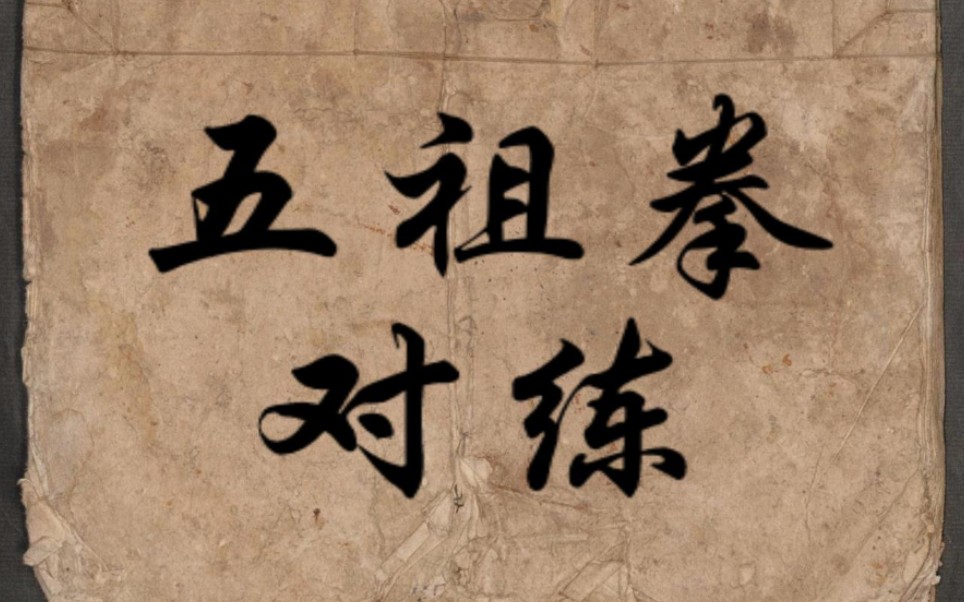 五祖拳
对练